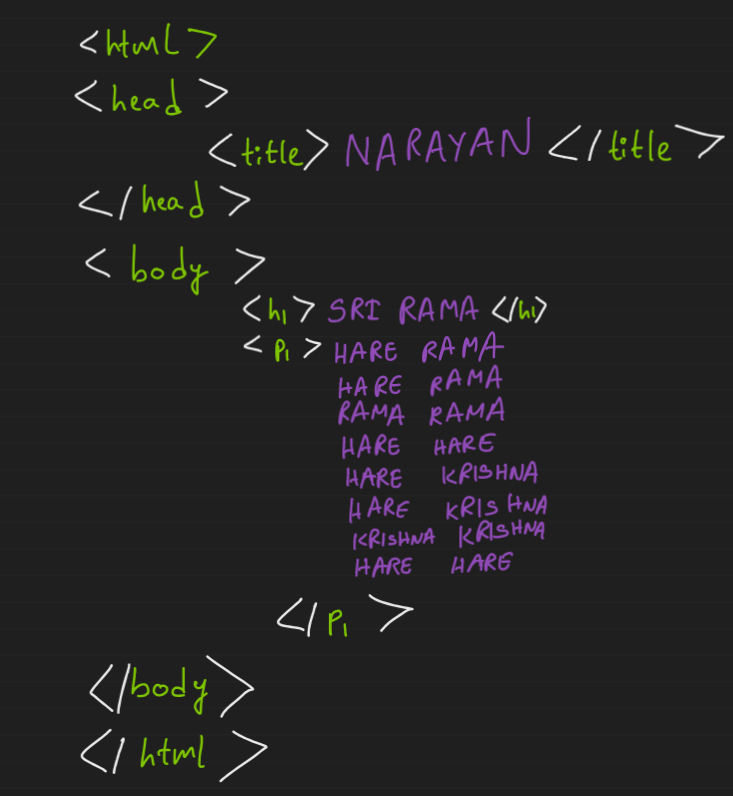 <html>
<head>
<title> NARAYAN </title>
</head>
<body>
<h1> SRI RAMA </h1>
<p1> HARE RAMA
HARE RAMA
RAMA RAMA
HARE HARE
HARE KRISHNA
HARE KRISHNA
KRISHNA KRISHNA
HARE HARE
</p1>
</body>
</html>